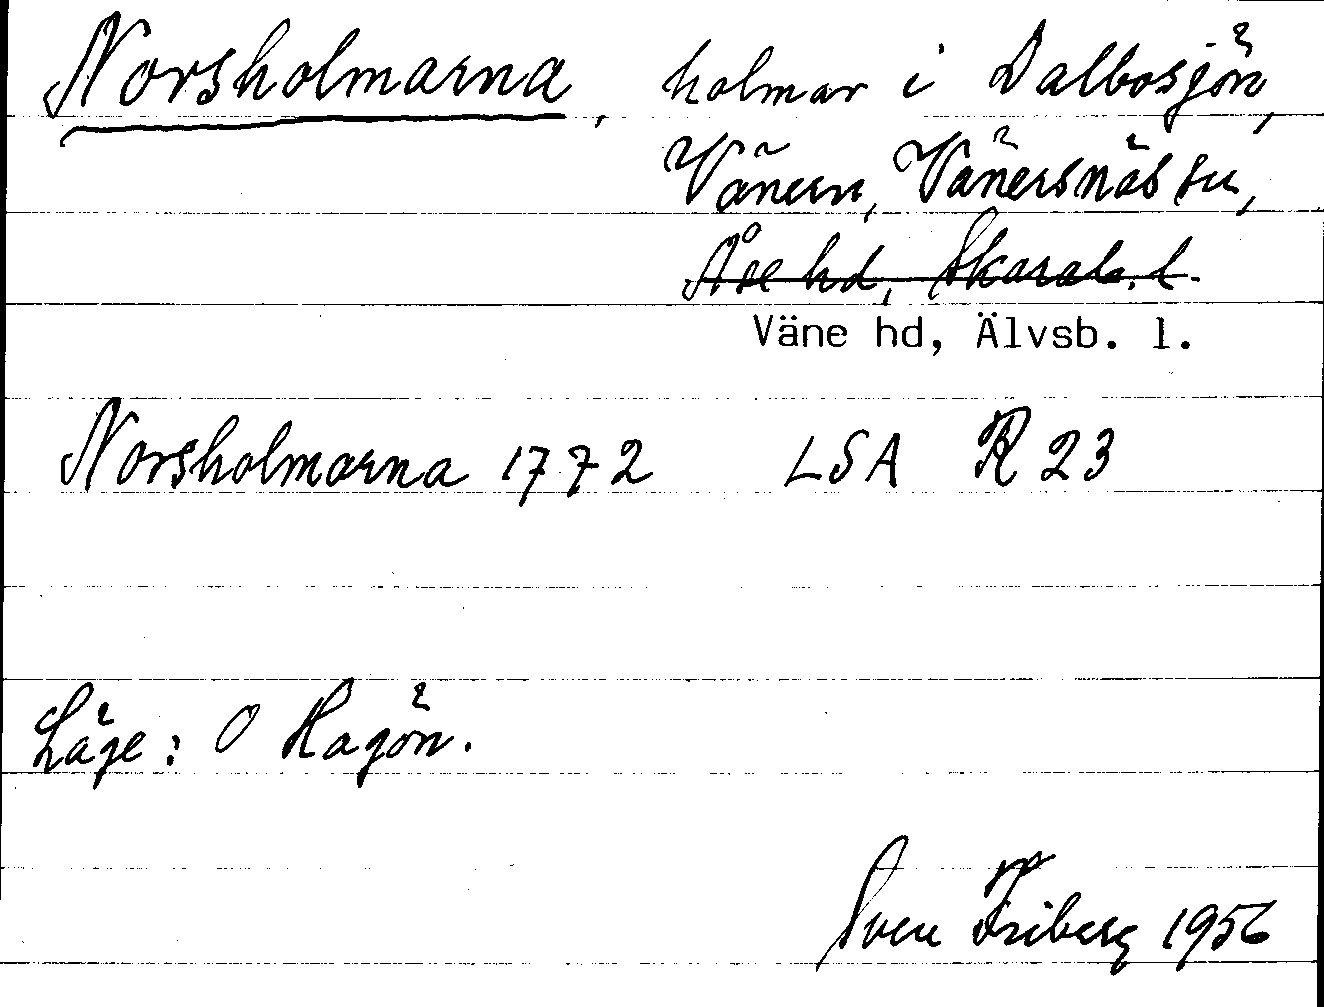 Norsholmarna, holmar i Dalbosjön,
Vänern, Vänersnäs sn,
Åse hd, Skarab. l.
Väne hd, Älvsb. l.
Norsholmarna 1772 LSA R 23
Läge: O Hagön.
Sven Friberg 1956